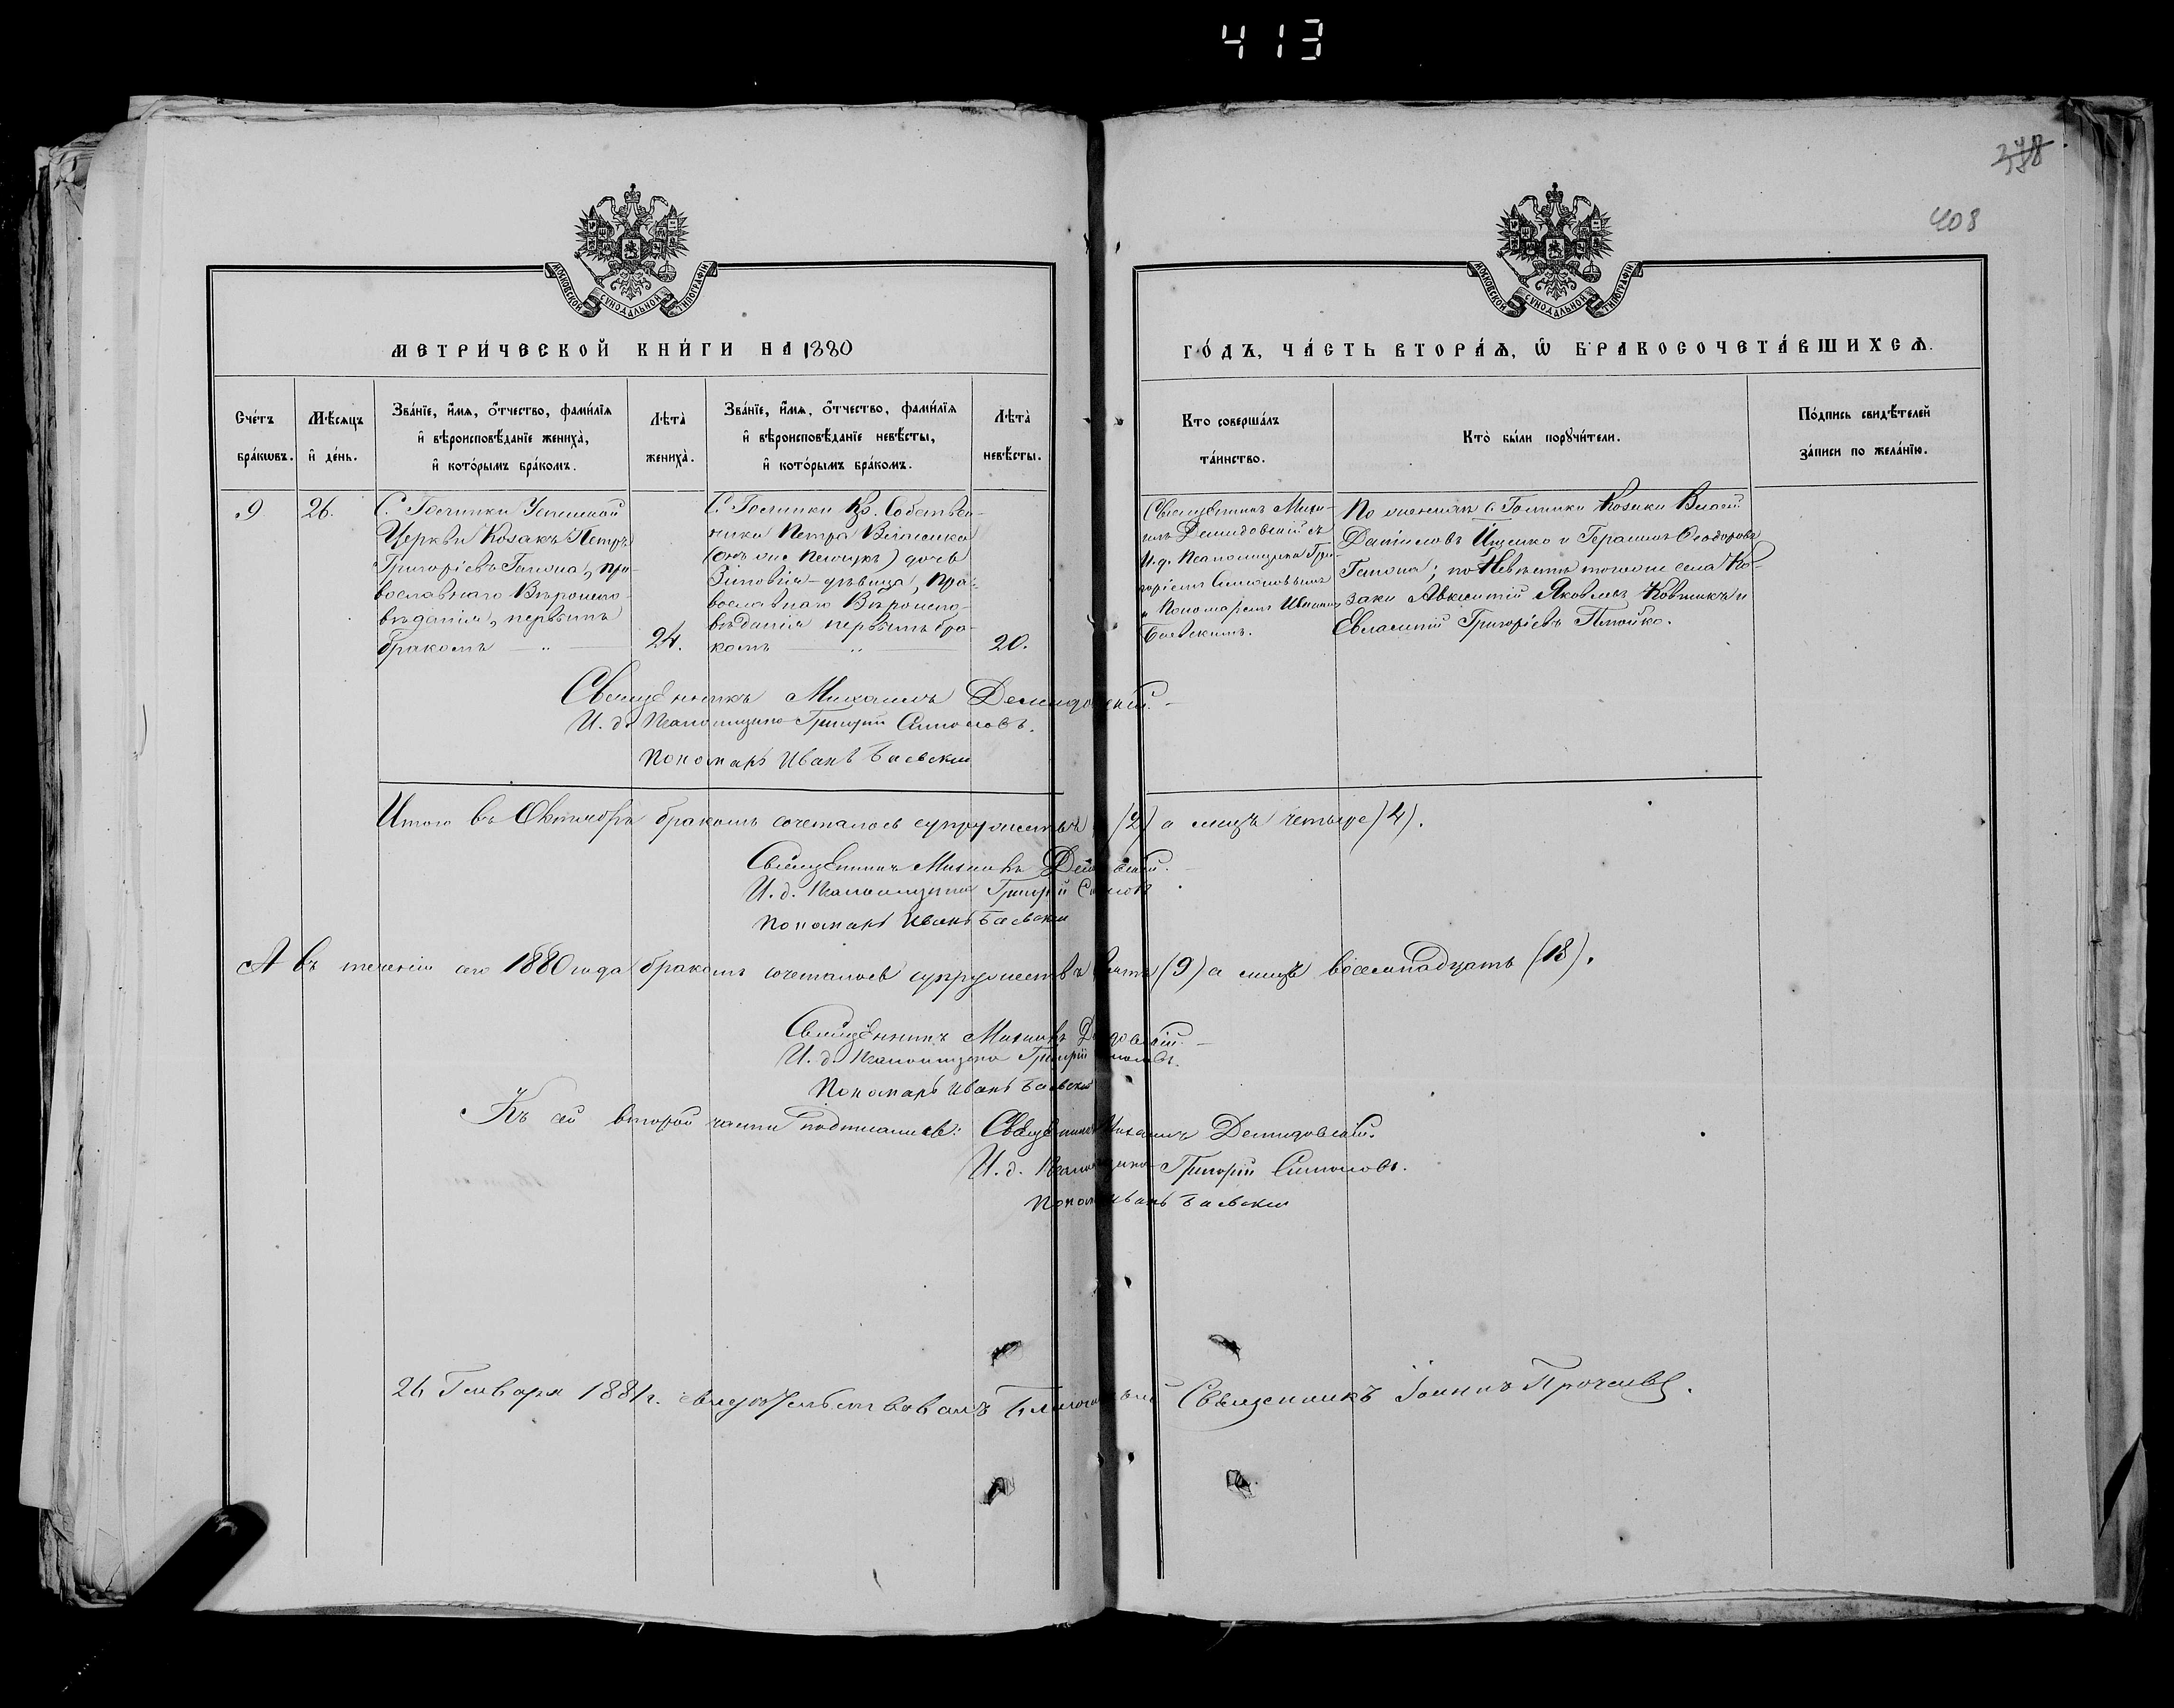 413
378
408
МОСКОВСКОЙ СѴНОДАЛЬНОЙ ТИПОГРАФІИ
МОСКОВСКОЙ СѴНОДАЛЬНОЙ ТИПОГРАФІИ
МЕТРИ́ЧЕСКОЙ КНИ́ГИ НА 1880
ГО́ДЪ, ЧА́СТЬ ВТОРА́Ѧ, Ѡ҆ БРАКОСОЧЕТА́ВШИХСѦ.
Сче́тъ бра́кѡвъ.
Мѣ́сяцъ и҆ де́нь.
Зва́нїе, и҆́мѧ, ѻ҆́тчество, фами́лїѧ
и҆ вѣроисповѣ́данїе жениха̀,
и҆ кото́рымъ бра́комъ.
Лѣта̀ жениха̀.
Зва́нїе, и҆́мѧ, ѻ҆́тчество, фами́лїѧ
и҆ вѣроисповѣ́данїе невѣ́сты,
и҆ кото́рымъ бра́комъ.
Лѣта̀ невѣ́сты.
Кто̀ соверша́лъ
та́инство.
Кто̀ бы́ли порꙋчи́тели.
По́дпись свидѣ́телей
за́писи по жела́нїю.
9
26.
Церкви Козакъ Петръ
Григоріевъ Гапона, пра-
вославнаго Вѣроиспо-
вѣданія, первымъ
бракомъ
24.
дочь
Зиновія - дѣвица, пра-
вославнаго Вѣроиспо-
вѣданія первымъ бра-
комъ
20.
Священникъ Миха-
илъ Демидовскій съ
И. д. Псаломщика Гри-
горіемъ Симоновымъ
и Пономаремъ Иваномъ
Баевскимъ.
Козаки Власій
Даніиловъ Ищенко и Герасимъ Ѳеодоровъ
Гапона; по Невѣстѣ тогоже села Ко-
заки Авксентій Яковлевъ и
Григорьевъ
Священникъ Михаилъ Демидовскій.
И. д. Псаломщика Григорій Симоновъ.
Пономарь Иванъ Баевскій
Итого въ Октябрѣ бракомъ сочеталось супружествъ (2) а лицъ четыре (4).
Священникъ Михаилъ Демидовскій.
И. д. Псаломщика Григорій Симоновъ
Пономарь Иванъ Баевскій
А въ теченіи сего 1880 года бракомъ сочеталось супружествъ девять (9) а лицъ восемнадцать (18).
Священникъ Михаилъ Демидовскій.
И. д. Псаломщика Григорій Симоновъ.
Пономарь Иванъ Баевскій
Къ сей второй части подписались: Священникъ Михаилъ Демидовскій.
И. д. Псаломщика Григорій Симоновъ.
Пономарь Иванъ Баевскій
26 Генваря 1881 г. свидѣтельствовалъ Благочинный Священникъ Іоаннъ